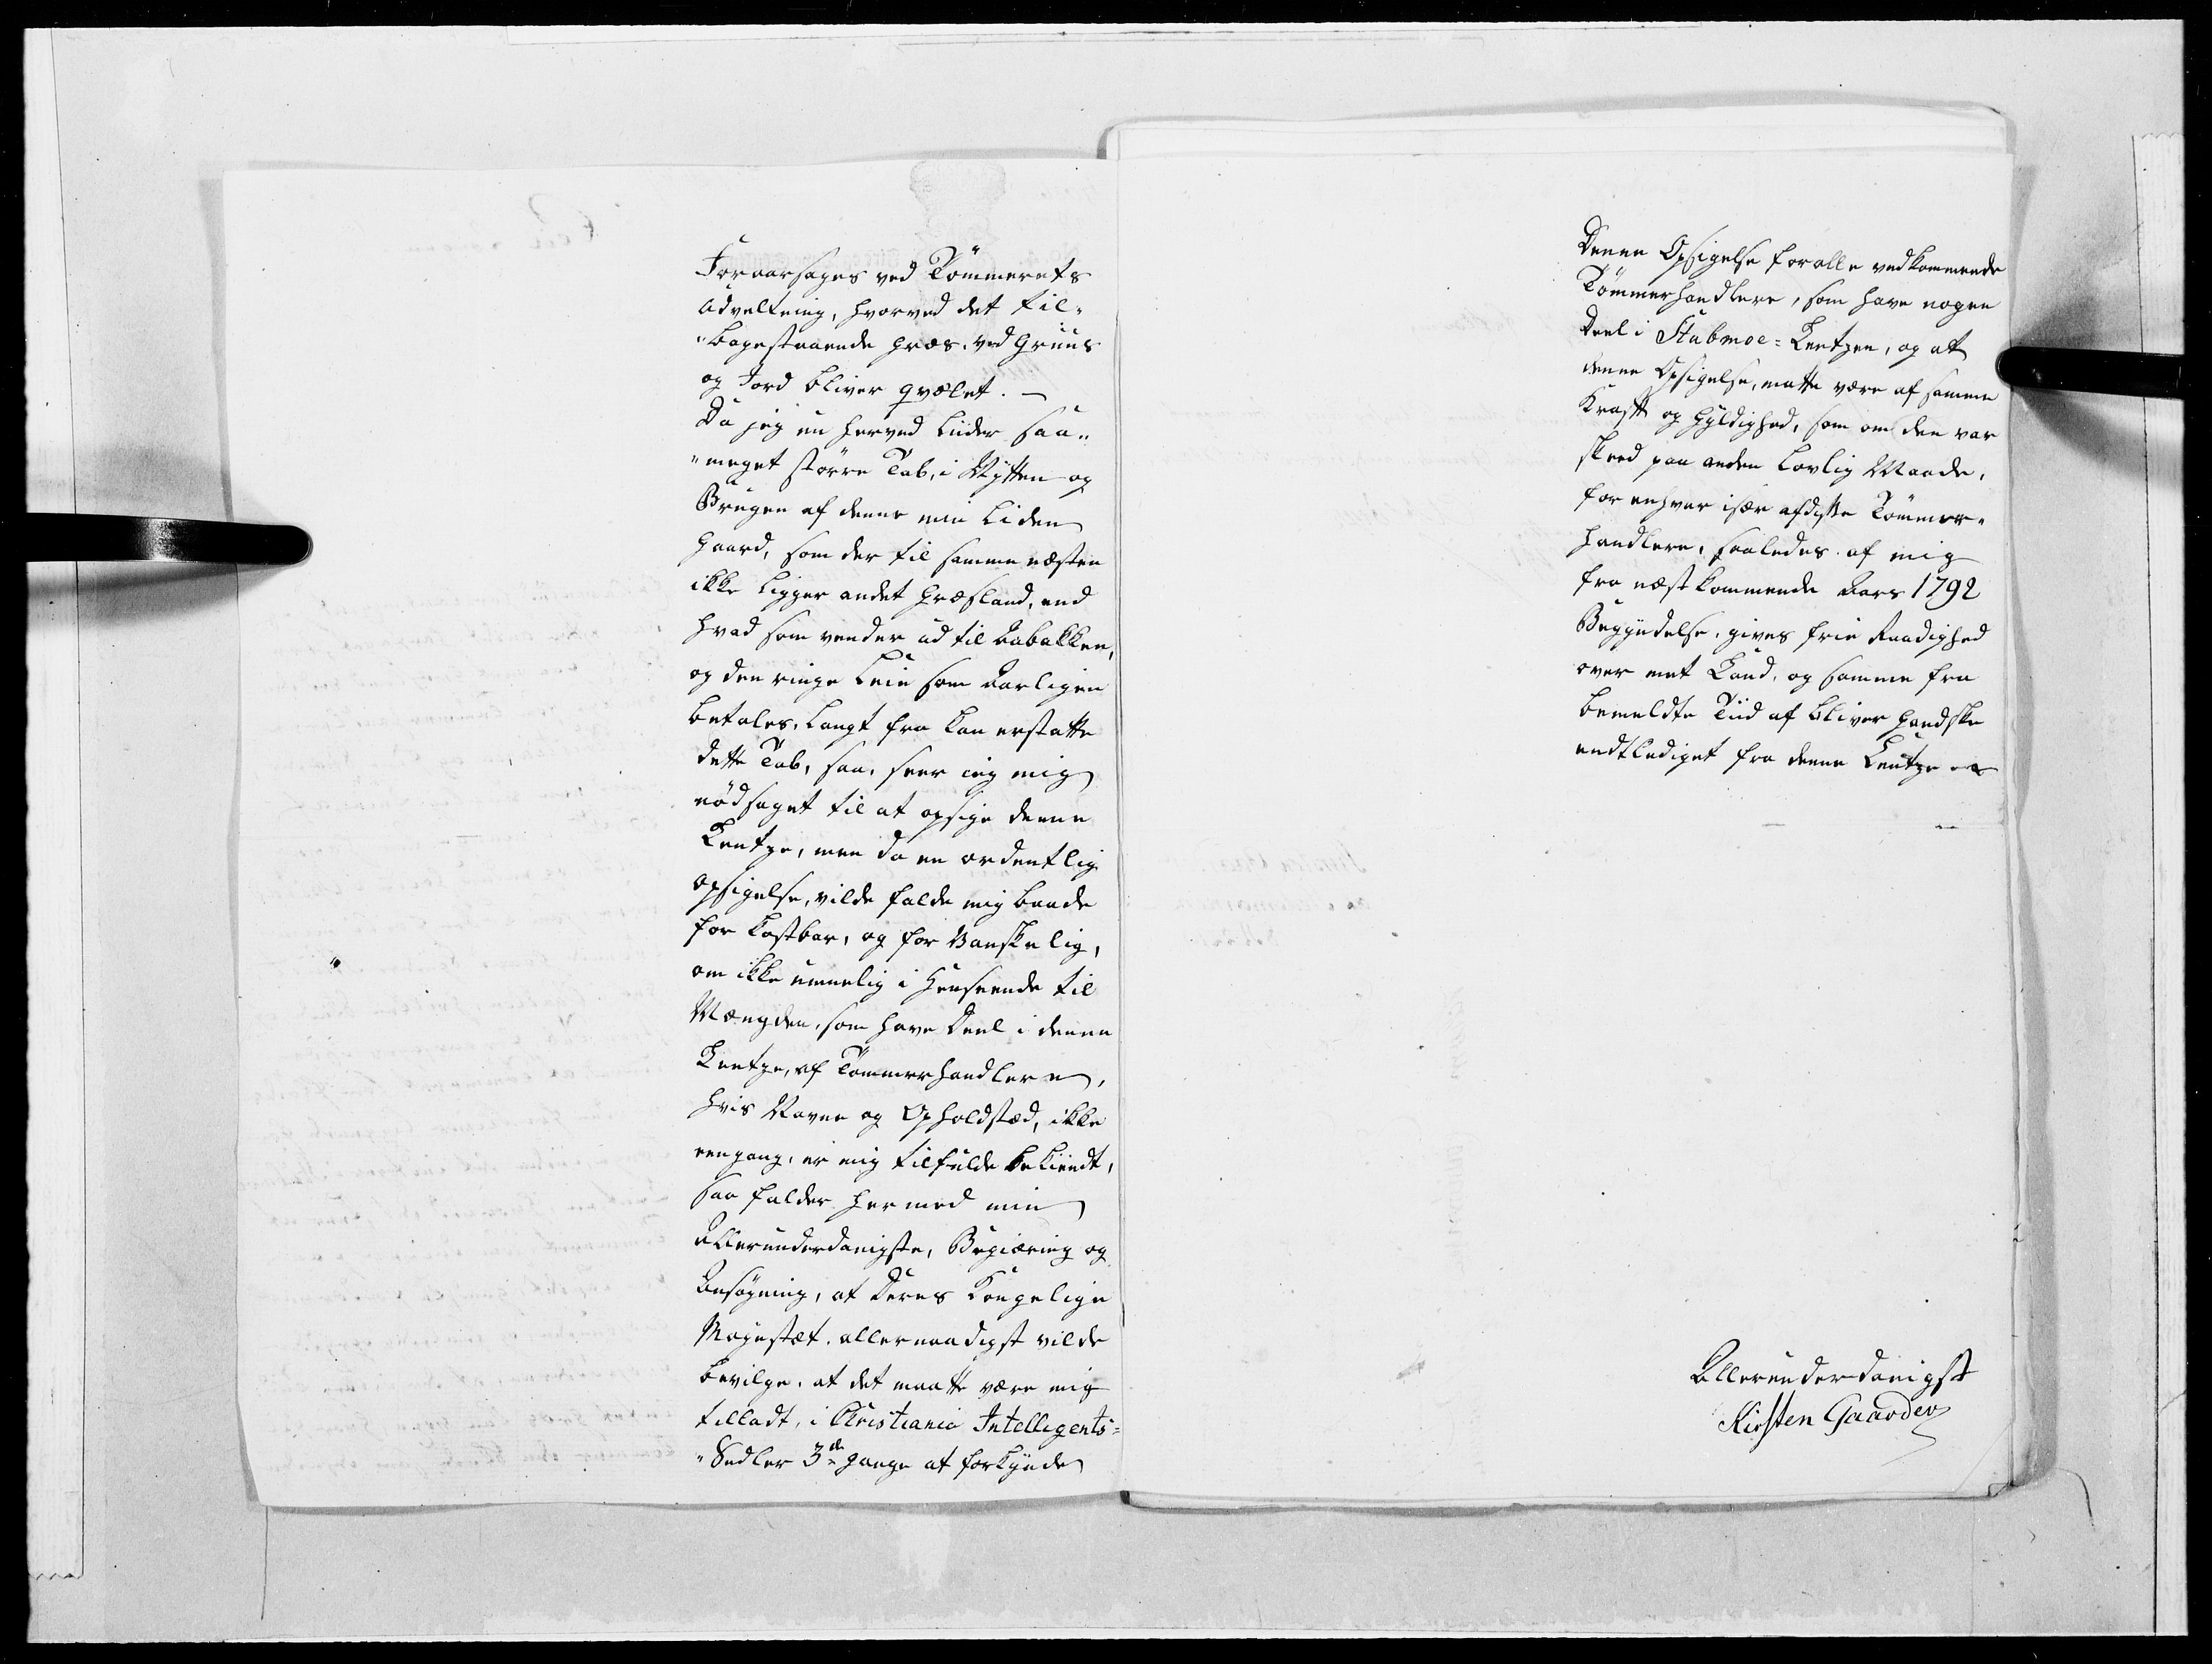 Foraarsages ved Tömmerets
Udveltning, hvorved det til-
"bagestaaende græs, ved Gruus
og Jord bliver qvælet. —
Da jeg nu herved liider saa-
"meget större Tab, i Nÿtten og
Brugen af denne min liden
Gaard, som der til samme næsten
ikke ligger andet Græsland, end
hvad som vender ud til Aabakken,
og den ringe Leie som Aarligen
betales, langt fra kan erstatte
dette Tab, saa, seer jeg mig
nödsaget til at opsige denne
Lentze, men da en ordentlig
opsigelse, vilde falde mig baade
for kostbar, og for Vanskelig,
om ikke umuelig i Henseende til
Mængden, som have Deel i denne
Lentze, af Tömmerhandlere,
hvis Navne og Opholdstæd, ikke
eengang, er mig tilfulde bekiendt,
saa falder hermed min
Allerunderdanigste, Begiæring og
Ansögning, at Deres Kongelige
Mayestæt, allernaadigst vilde
bevilge, at det maatte være mig
tilladt, i Christiania Intelligents-
"Sedler 3de gange at forkÿnde
Denne Opsigelse for alle vedkommende
Tömmerhandlere, som have nogen
Deel i Stubmoe-Lentzen, og at
denne Opsigelse, matte være af samme
Kraft og Gyldighed, som om den var
skeed paa anden lovlig Maade,
for enhver især af disse Tömmer-
handlere, saaledes af mig
fra næstkommende Aars 1792
Begyndelse, gives frie Raadighed
over mit Land, og samme fra
bemeldte Tiid af bliver gandske
endtlediget fra denne Lentze
Allerunderdanigst
Kirsten Gaarder